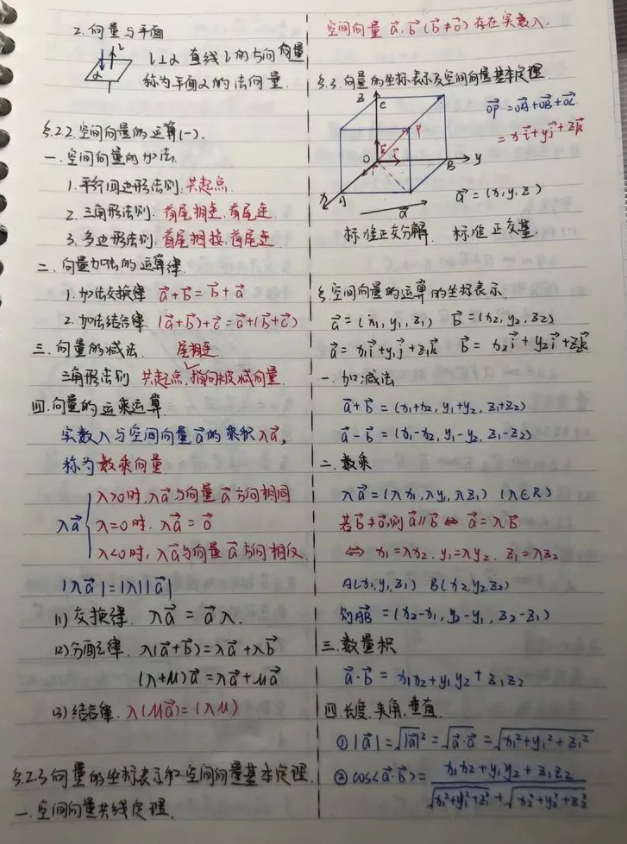 2.向量与平面
l⊥α 直线l的方向向量
称为平面α的法向量.
§2.2.空间向量的运算(一).
一.空间向量的加法.
1.平行四边形法则.共起点.
2.三角形法则.首尾相连,首尾连
3.多边形法则.首尾相接,首尾连
二.向量加法的运算律
1.加法交换律 a⃗+b⃗=b⃗+a⃗
2.加法结合律 (a⃗+b⃗)+c⃗=a⃗+(b⃗+c⃗)
三.向量的减法. 尾相连
三角形法则 共起点,指向被减向量.
四.向量的运乘运算.
实数λ与空间向量a⃗的乘积λa⃗,
称为数乘向量
λ>0时,λa⃗与向量a⃗方向相同
λa⃗ λ=0时,λa⃗=0⃗
λ<0时,λa⃗与向量a⃗方向相反.
|λa⃗|=|λ||a⃗|
(1)交换律. λa⃗=a⃗λ.
(2)分配律. λ(a⃗+b⃗)=λa⃗+λb⃗
(λ+μ)a⃗=λa⃗+μa⃗
(3)结合律. λ(μa⃗)=(λμ)
§2.3向量的坐标表示和空间向量基本定理.
一.空间向量共线定理.
空间向量a⃗,b⃗(b⃗≠0⃗)存在实数λ.
§.3.向量的坐标表示及空间向量基本定理.
z C
P
O B y
x A
a⃗
OP⃗=OA⃗+OB⃗+OC⃗
=xi⃗+yj⃗+zk⃗
a⃗=(x,y,z)
标准正交分解. 标准正交基
§.空间向量的运算的坐标表示.
a⃗=(x₁,y₁,z₁) b⃗=(x₂,y₂,z₂)
a⃗=x₁i⃗+y₁j⃗+z₁k⃗ b⃗=x₂i⃗+y₂j⃗+z₂k⃗
一.加减法
a⃗+b⃗=(x₁+x₂,y₁+y₂,z₁+z₂)
a⃗-b⃗=(x₁-x₂,y₁-y₂,z₁-z₂)
二.数乘
λa⃗=(λx₁,λy₁,λz₁) (λ∈R)
若b⃗≠0⃗,则a⃗∥b⃗⇔a⃗=λb⃗
⇔x₁=λx₂.y₁=λy₂.z₁=λz₂
A(x₁,y₁,z₁) B(x₂,y₂,z₂)
则AB⃗=(x₂-x₁,y₂-y₁,z₂-z₁)
三.数量积
a⃗·b⃗=x₁x₂+y₁y₂+z₁z₂
四.长度.夹角.垂直.
①|a⃗|=√|a⃗|²=√a⃗·a⃗=√x₁²+y₁²+z₁²
②cos<a⃗·b⃗>= x₁x₂+y₁y₂+z₁z₂
√x₁²+y₁²+z₁²+√x₂²+y₂²+z₂²